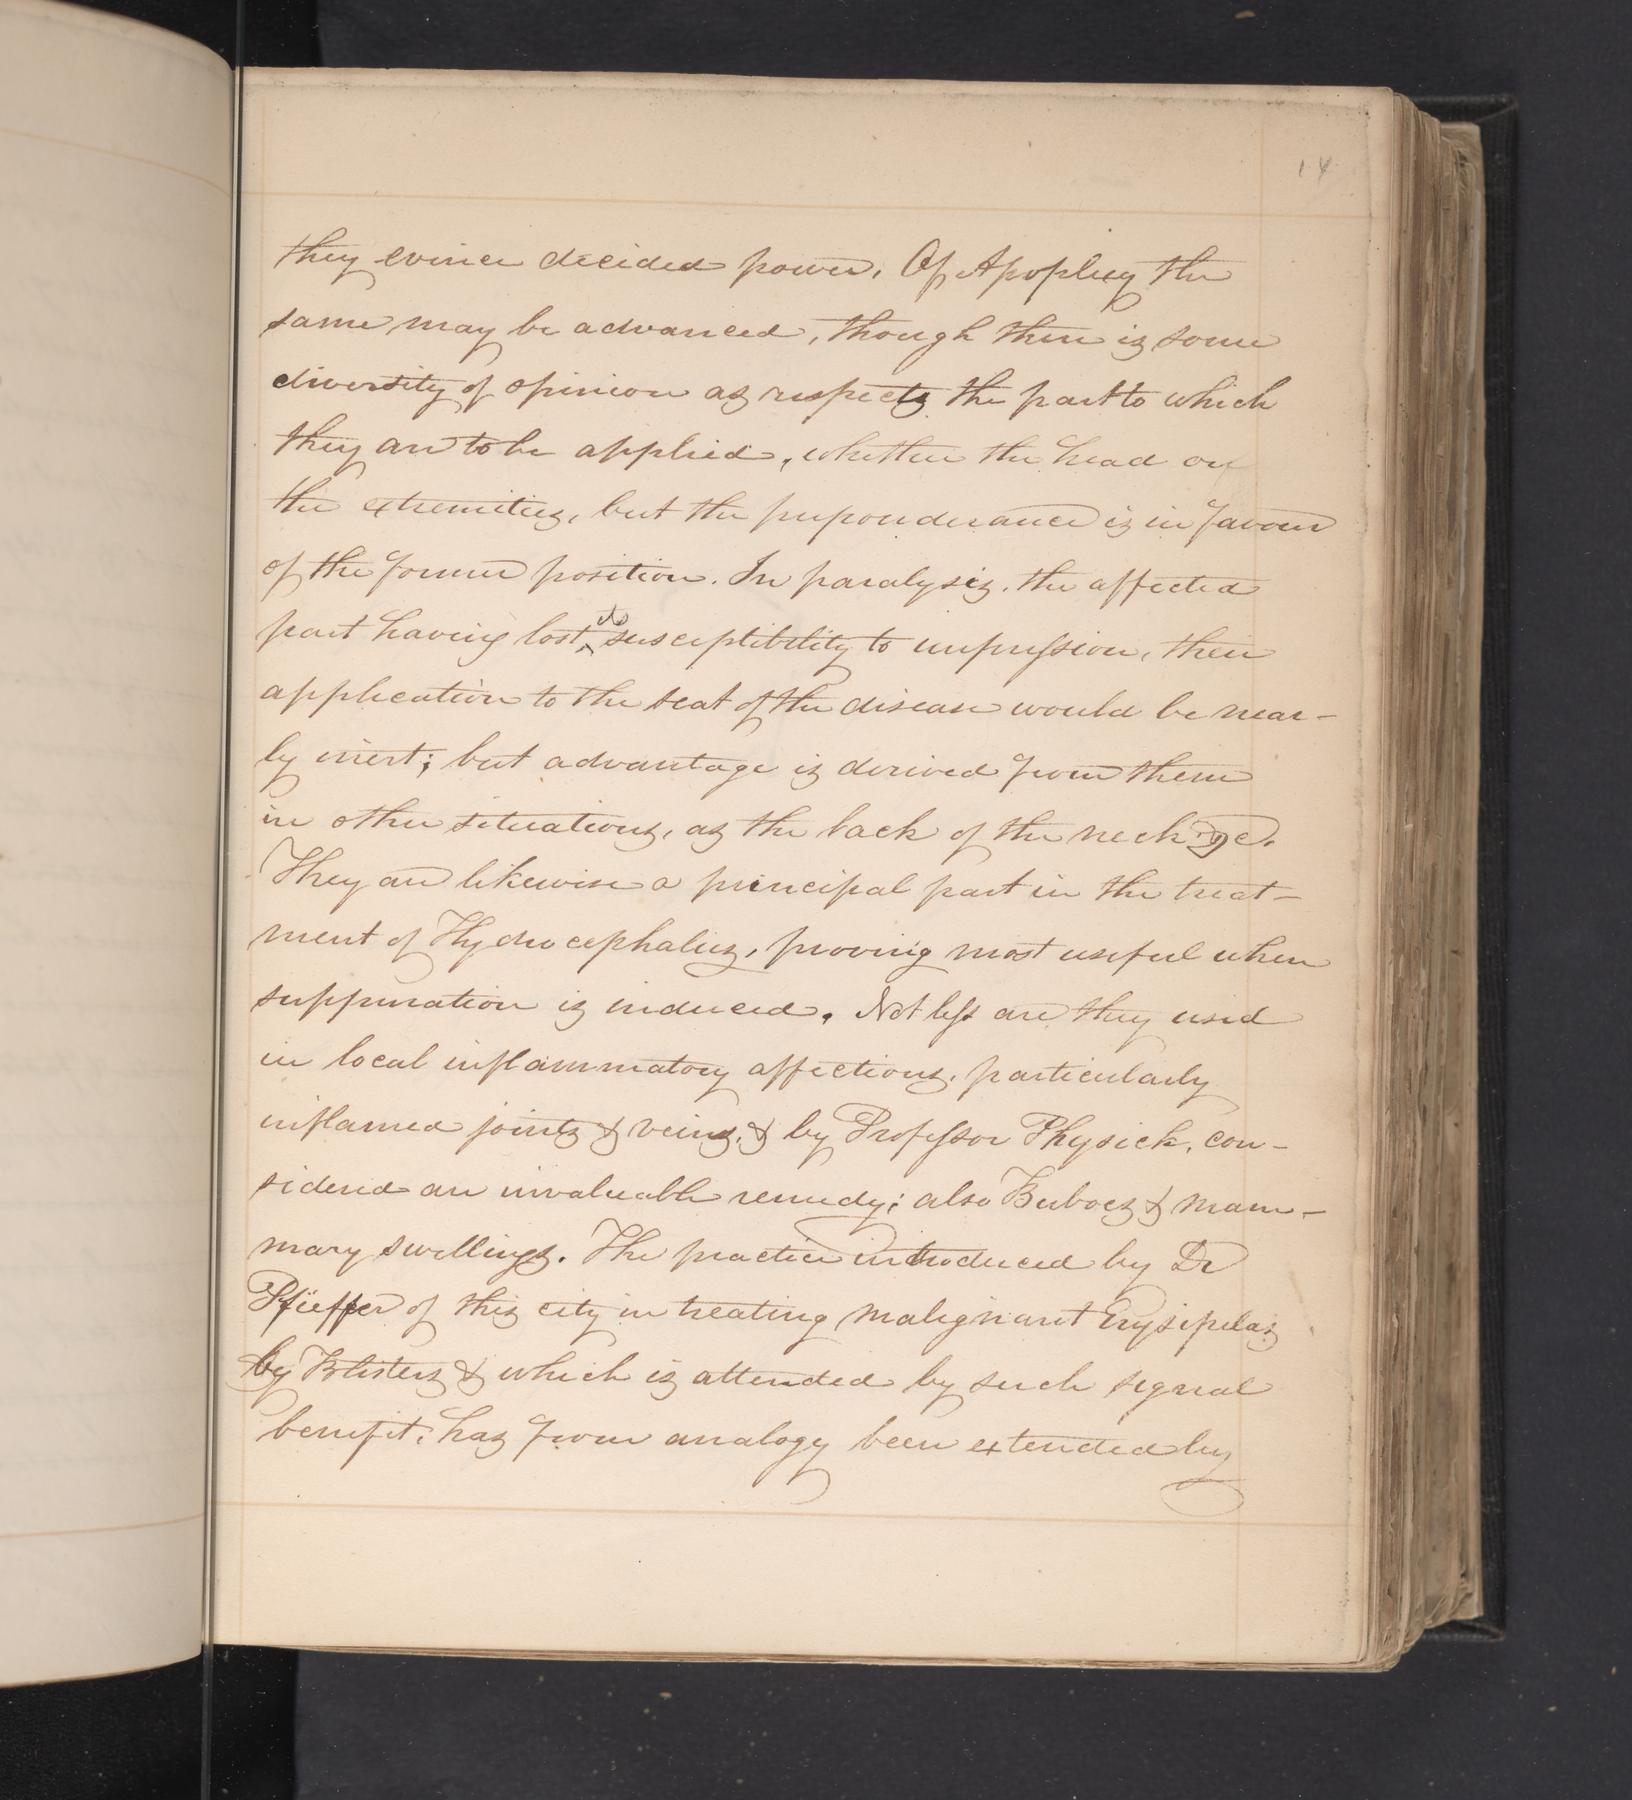 14
they evince decided power. Of Apoplexy the
same may be advanced, though there is some
diversity of opinion as respects the part to which
they are to be applied, whether the head or
the extremities, but the preponderance is in favour
of the former position. In paralysis, the affected
part having lost its susceptibility to impression, their
application to the seat of the disease would be near-
ly inert; but advantage is derived from them
in other situations, as the back of the neck &c.
They are likewise a principal part in the treat-
ment of Hydrocephalus, proving most useful when
suppuration is induced. Not less are they used
in local inflammatory affections, particularly
inflamed joints & veins, & by Professor Physick, con-
sidered an invaluable remedy; also Buboes & mam-
mary swellings. The practice introduced by Dr
Pfieffer of this city in treating malignant Erysipelas
by Blisters & which is attended by such signal
benefit, has from analogy been extended by